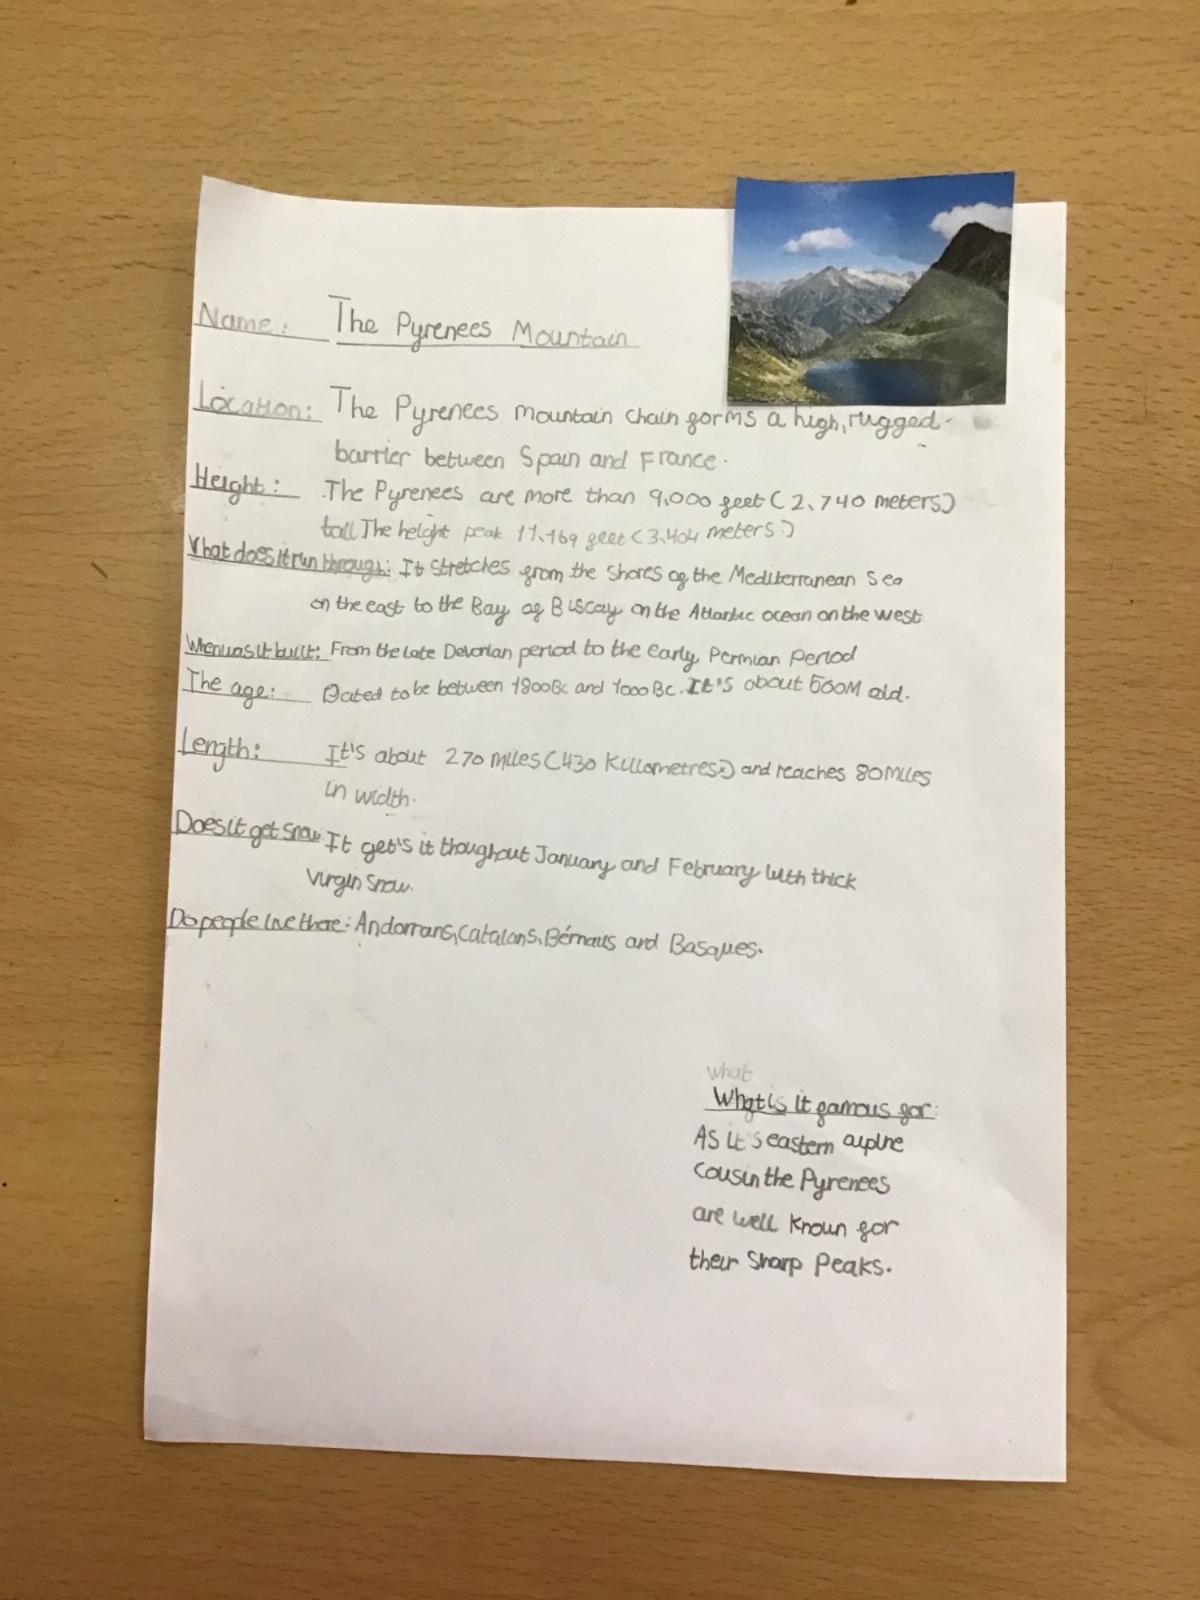 Name: The Pyrenees Mountain
Location: The Pyrenees mountain chain forms a high, rugged
barrier between Spain and France.
Height: The Pyrenees are more than 9,000 feet (2,740 meters)
tall The height peak 11,169 feet (3,404 meters.)
What does it run through: It stretches from the shores of the Mediterranean Sea
on the east to the Bay of Biscay on the Atlantic ocean on the west
When was it built: From the late Devonian period to the early Permian Period
The age: Dated to be between 1800Bc and 1000Bc. It's about 500M old.
Length: It's about 270 miles (430 Killometres.) and reaches 80 Miles
in width.
Does it get snow It get's it thoughout January and February with thick
Virgin Snow.
Do people live there: Andorrans, Catalans, Bérnais and Basques.
what
What is it famous for:
As it's eastern alpine
cousin the Pyrenees
are well known for
their Sharp Peaks.